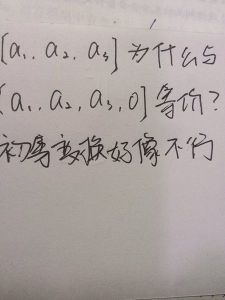 [a₁, a₂, a₃] 为什么与
[a₁, a₂, a₃, 0] 等价?
初等变换好像不行